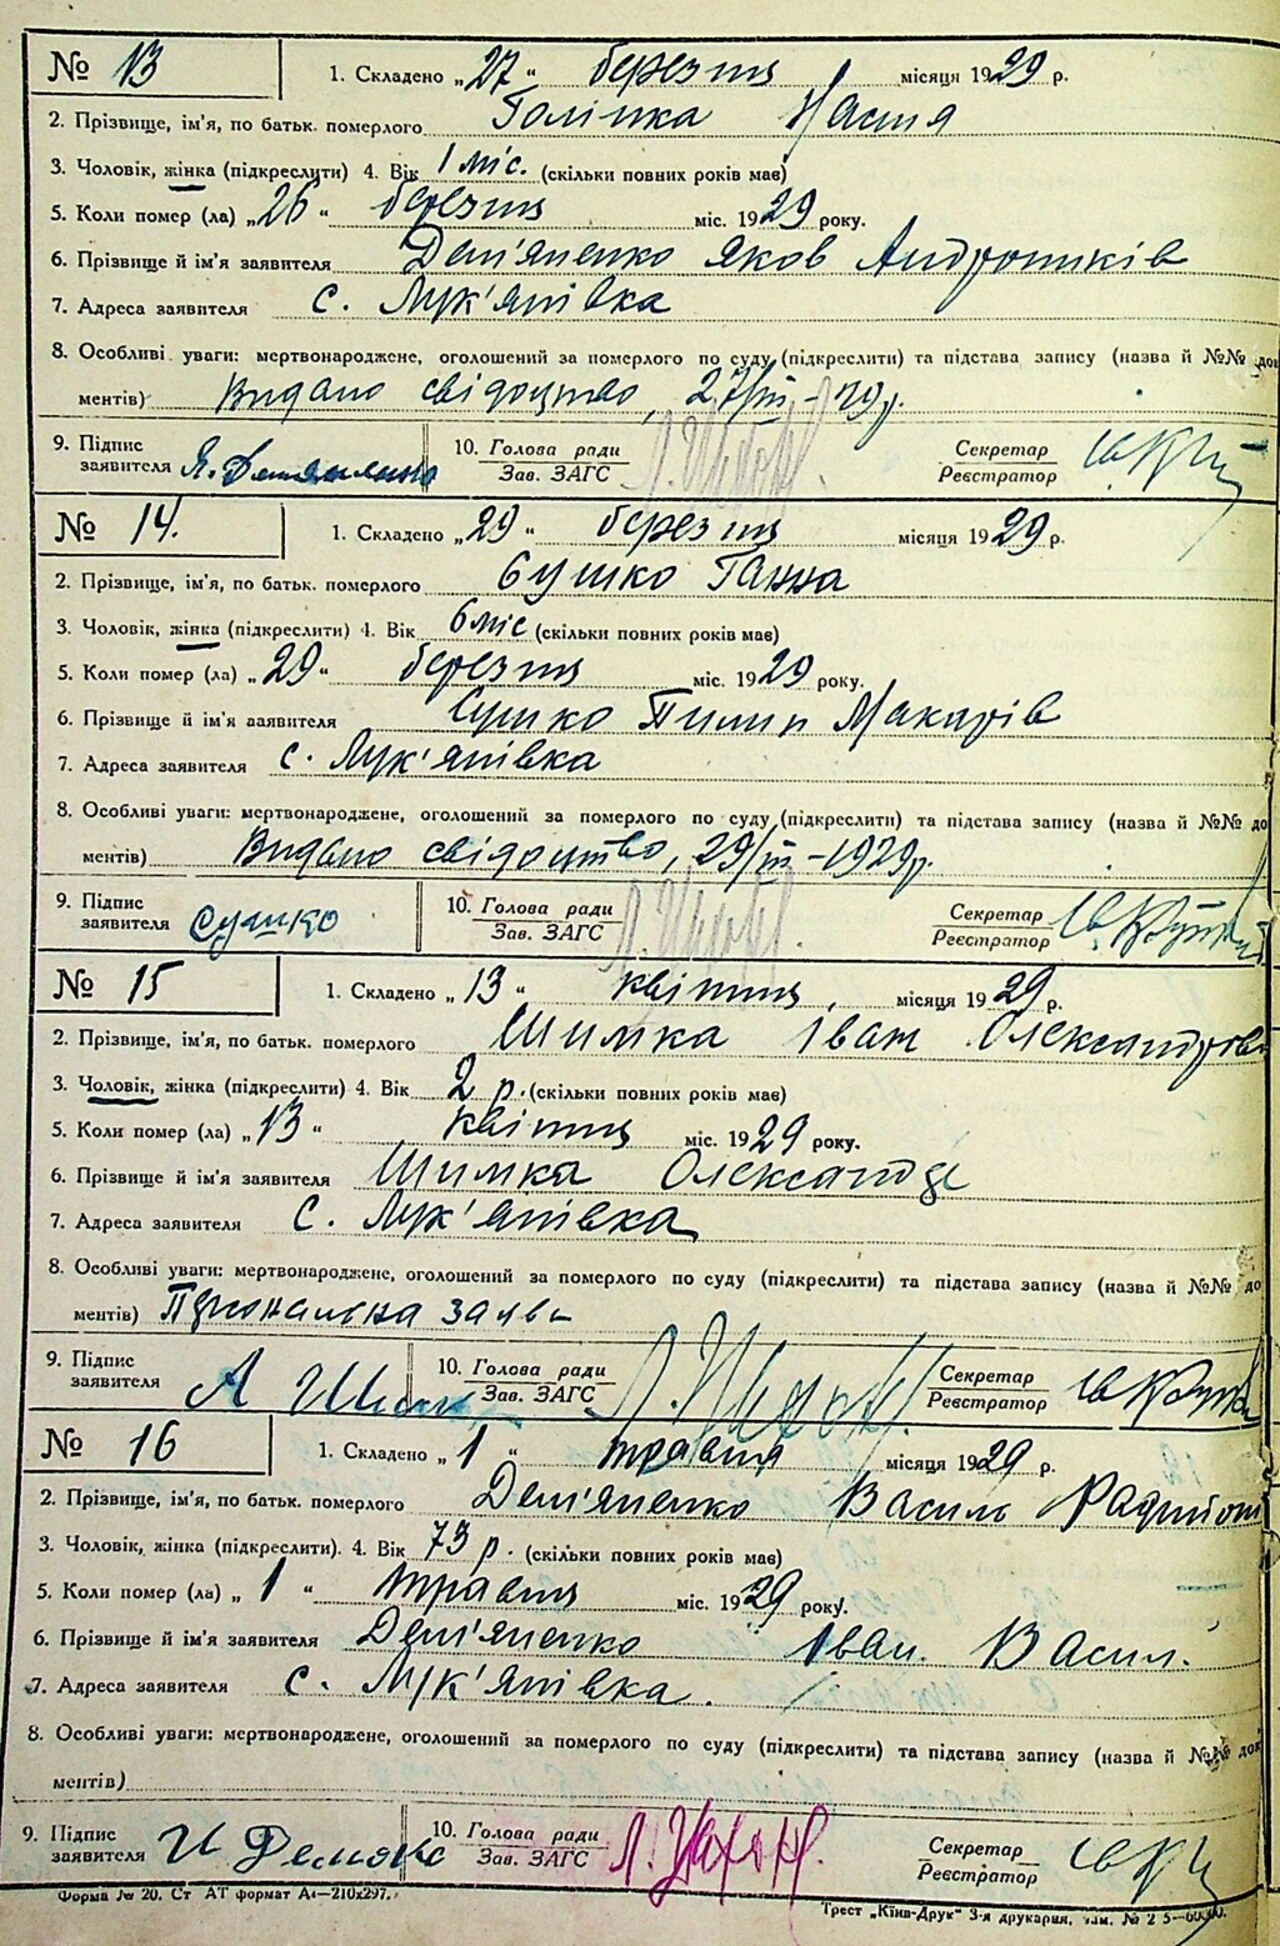 № 13 1. Складено „27“ березня місяця 1929 р.
2. Прізвище, ім'я, по батьк. померлого Голінка Настя
3. Чоловік, жінка (підкреслити) 4. Вік 1 міс. (скільки повних років має)
5. Коли помер (ла) „26“ березня міс. 1929 року.
6. Прізвище й ім'я заявителя Дем'яненко Яков Андроників
7. Адреса заявителя с. Лук'янівка
8. Особливі уваги: мертвонароджене, оголошений за померлого по суду (підкреслити) та підстава запису (назва й №№ доку
ментів) Видано свідоцтво, 27/III – 29 р.
9. Підпис 10. Голова ради Секретар
заявителя Зав. ЗАГС Реєстратор
№ 14. 1. Складено „29“ березня місяця 1929 р.
2. Прізвище, ім'я, по батьк. померлого Сушко Ганна
3. Чоловік, жінка (підкреслити) 4. Вік 6 міс (скільки повних років має)
5. Коли помер (ла) „29“ березня міс. 1929 року.
6. Прізвище й ім'я заявителя Сушко Пилип Макарів
7. Адреса заявителя с. Лук'янівка
8. Особливі уваги: мертвонароджене, оголошений за померлого по суду (підкреслити) та підстава запису (назва й №№ до
ментів) Видано свідоцтво, 29/III – 1929 р.
9. Підпис 10. Голова ради Секретар
заявителя Сушко Зав. ЗАГС Реєстратор
№ 15 1. Складено „13“ квітня, місяця 1929 р.
2. Прізвище, ім'я, по батьк. померлого Шимка Іван Олександрів
3. Чоловік, жінка (підкреслити) 4. Вік 2 р. (скільки повних років має)
5. Коли помер (ла) „13“ квітня міс. 1929 року.
6. Прізвище й ім'я заявителя Шимка Олександр
7. Адреса заявителя с. Лук'янівка
8. Особливі уваги: мертвонароджене, оголошений за померлого по суду (підкреслити) та підстава запису (назва й №№ до
ментів) Персональна заява
9. Підпис 10. Голова ради Секретар
заявителя А Зав. ЗАГС Реєстратор
№ 16 1. Складено „1“ травня місяця 1929 р.
2. Прізвище, ім'я, по батьк. померлого Дем'яненко Василь
3. Чоловік, жінка (підкреслити). 4. Вік 73 р. (скільки повних років має)
5. Коли помер (ла) „1“ травня міс. 1929 року.
6. Прізвище й ім'я заявителя Дем'яненко Іван. Васил.
7. Адреса заявителя с. Лук'янівка.
8. Особливі уваги: мертвонароджене, оголошений за померлого по суду (підкреслити) та підстава запису (назва й №№ док
ментів)
9. Підпис 10. Голова ради Секретар
заявителя И Зав. ЗАГС Реєстратор
Форма № 20. Ст АТ формат А4—210x297.
Трест „Київ-Друк“ 3-я друкарня,